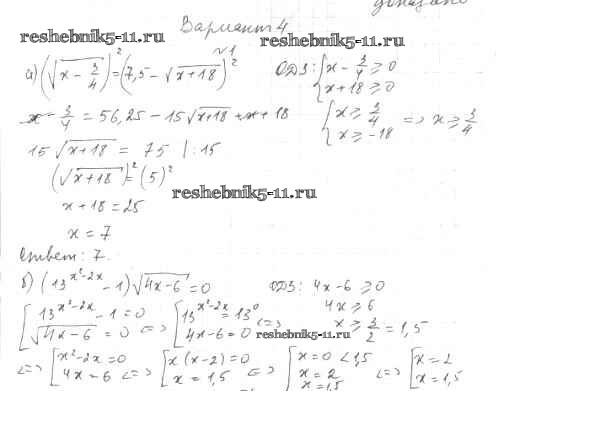 доказано
Вариант 4
reshebnik5-11.ru
reshebnik5-11.ru
№1
а) (√(x - 3/4))² = (7,5 - √(x+18))² ОДЗ: { x - 3/4 ≥ 0
x + 18 ≥ 0
x - 3/4 = 56,25 - 15√(x+18) + x + 18 { x ≥ 3/4
x ≥ -18 => x ≥ 3/4
15√(x+18) = 75 | :15
(√(x+18))² = (5)²
reshebnik5-11.ru
x + 18 = 25
x = 7
Ответ: 7.
б) (13^(x²-2x) - 1)√(4x-6) = 0 ОДЗ: 4x - 6 ≥ 0
4x ≥ 6
x ≥ 3/2 = 1,5
[ 13^(x²-2x) - 1 = 0
√(4x-6) = 0 <=> [ 13^(x²-2x) = 13⁰
4x - 6 = 0 <=>
reshebnik5-11.ru
<=> [ x² - 2x = 0
4x = 6 <=> [ x(x-2) = 0
x = 1,5 <=> [ x = 0 < 1,5
x = 2
x = 1,5 <=> [ x = 2
x = 1,5